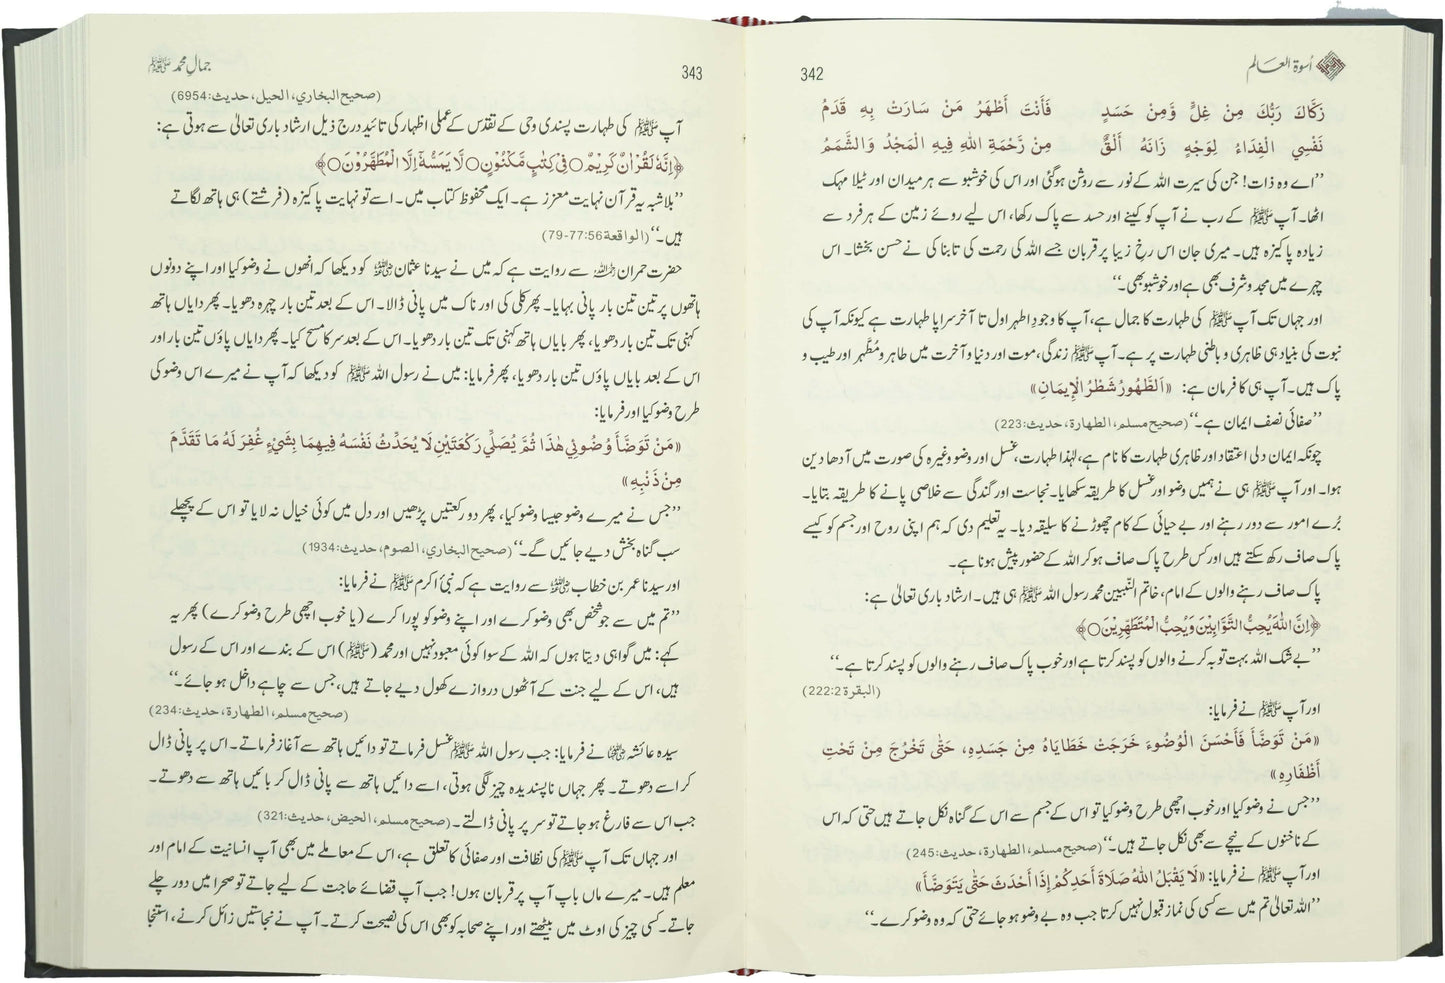 342
اُسوۃ العالم
زَكَّاكَ رَبُّكَ مِنْ غِلٍّ وَّمِنْ حَسَدٍ فَأَنْتَ أَطْهَرُ مَنْ سَارَتْ بِهِ قَدَمُ
نَفْسِي الْفِدَاءُ لِوَجْهٍ زَانَهُ أَلَقٌ مِنْ رَّحْمَةِ اللهِ فِيهِ الْمَجْدُ وَالشَّمَمُ
’’اے وہ ذات! جن کی سیرت اللہ کے نور سے روشن ہوگئی اور اس کی خوشبو سے ہر میدان اور ٹیلا مہک
اٹھا۔ آپ ﷺ کے رب نے آپ کو کینے اور حسد سے پاک رکھا، اس لیے روئے زمین کے ہر فرد سے
زیادہ پاکیزہ ہیں۔ میری جان اس رخِ زیبا پر قربان جسے اللہ کی رحمت کی تابناکی نے حسن بخشا۔ اس
چہرے میں مجد و شرف بھی ہے اور خوشبو بھی۔‘‘
اور جہاں تک آپ ﷺ کی طہارت کا جمال ہے، آپ کا وجودِ اطہر اول تا آخر سراپا طہارت ہے کیونکہ آپ کی
نبوت کی بنیاد ہی ظاہری و باطنی طہارت پر ہے۔ آپ ﷺ زندگی، موت اور دنیا و آخرت میں طاہر و مُطَہَّر اور طیب و
پاک ہیں۔ آپ ہی کا فرمان ہے: «اَلطَّهُورُ شَطْرُ الْإِيمَانِ»
’’صفائی نصف ایمان ہے۔‘‘ (صحیح مسلم، الطهارة، حدیث: 223)
چونکہ ایمان دلی اعتقاد اور ظاہری طہارت کا نام ہے، لہٰذا طہارت، غسل اور وضو وغیرہ کی صورت میں آدھا دین
ہوا۔ اور آپ ﷺ ہی نے ہمیں وضو اور غسل کا طریقہ سکھایا۔ نجاست اور گندگی سے خلاصی پانے کا طریقہ بتایا۔
بُرے امور سے دور رہنے اور بے حیائی کے کام چھوڑنے کا سلیقہ دیا۔ یہ تعلیم دی کہ ہم اپنی روح اور جسم کو کیسے
پاک صاف رکھ سکتے ہیں اور کس طرح پاک صاف ہو کر اللہ کے حضور پیش ہونا ہے۔
پاک صاف رہنے والوں کے امام، خاتم النّبیین محمد رسول اللہ ﷺ ہی ہیں۔ ارشاد باری تعالیٰ ہے:
﴿اِنَّ اللّٰهَ يُحِبُّ التَّوَّابِيْنَ وَيُحِبُّ الْمُتَطَهِّرِيْنَ○﴾
’’بے شک اللہ بہت توبہ کرنے والوں کو پسند کرتا ہے اور خوب پاک صاف رہنے والوں کو پسند کرتا ہے۔‘‘
(البقرة 222:2)
اور آپ ﷺ نے فرمایا:
«مَنْ تَوَضَّأَ فَأَحْسَنَ الْوُضُوءَ خَرَجَتْ خَطَايَاهُ مِنْ جَسَدِهِ، حَتَّى تَخْرُجَ مِنْ تَحْتِ
أَظْفَارِهِ»
’’جس نے وضو کیا اور خوب اچھی طرح وضو کیا تو اس کے جسم سے اس کے گناہ نکل جاتے ہیں حتی کہ اس
کے ناخنوں کے نیچے سے بھی نکل جاتے ہیں۔‘‘ (صحیح مسلم، الطهارة، حدیث: 245)
اور آپ ﷺ نے فرمایا: «لَا يَقْبَلُ اللهُ صَلَاةَ أَحَدِكُمْ إِذَا أَحْدَثَ حَتَّى يَتَوَضَّأَ»
’’اللہ تعالیٰ تم میں سے کسی کی نماز قبول نہیں کرتا جب وہ بے وضو ہو جائے حتی کہ وہ وضو کرے۔‘‘
343
جمالِ محمد ﷺ
(صحیح البخاري، الحیل، حدیث: 6954)
آپ ﷺ کی طہارت پسندی وحی کے تقدس کے عملی اظہار کی تائید درج ذیل ارشاد باری تعالیٰ سے ہوتی ہے:
﴿اِنَّهٗ لَقُرْاٰنٌ كَرِيْمٌ○ فِيْ كِتٰبٍ مَّكْنُوْنٍ○ لَّا يَمَسُّهٗٓ اِلَّا الْمُطَهَّرُوْنَ○﴾
’’بلاشبہ یہ قرآن نہایت معزز ہے۔ ایک محفوظ کتاب میں۔ اسے تو نہایت پاکیزہ (فرشتے) ہی ہاتھ لگاتے
ہیں۔‘‘ (الواقعة 77:56-79)
حضرت حمران رحمہ اللہ سے روایت ہے کہ میں نے سیدنا عثمان رضی اللہ عنہ کو دیکھا کہ انھوں نے وضو کیا اور اپنے دونوں
ہاتھوں پر تین تین بار پانی بہایا۔ پھر کلی کی اور ناک میں پانی ڈالا۔ اس کے بعد تین بار چہرہ دھویا۔ پھر دایاں ہاتھ
کہنی تک تین بار دھویا، پھر بایاں ہاتھ کہنی تک تین بار دھویا۔ اس کے بعد سر کا مسح کیا۔ پھر دایاں پاؤں تین بار اور
اس کے بعد بایاں پاؤں تین بار دھویا، پھر فرمایا: میں نے رسول اللہ ﷺ کو دیکھا کہ آپ نے میرے اس وضو کی
طرح وضو کیا اور فرمایا:
«مَنْ تَوَضَّأَ وُضُوئِي هٰذَا ثُمَّ يُصَلِّي رَكْعَتَيْنِ لَا يُحَدِّثُ نَفْسَهُ فِيهِمَا بِشَيْءٍ غُفِرَ لَهُ مَا تَقَدَّمَ
مِنْ ذَنْبِهِ»
’’جس نے میرے وضو جیسا وضو کیا، پھر دو رکعتیں پڑھیں اور دل میں کوئی خیال نہ لایا تو اس کے پچھلے
سب گناہ بخش دیے جائیں گے۔‘‘ (صحیح البخاري، الصوم، حدیث: 1934)
اور سیدنا عمر بن خطاب رضی اللہ عنہ سے روایت ہے کہ نبیٔ اکرم ﷺ نے فرمایا:
’’تم میں سے جو شخص بھی وضو کرے اور اپنے وضو کو پورا کرے (یا خوب اچھی طرح وضو کرے) پھر یہ
کہے: میں گواہی دیتا ہوں کہ اللہ کے سوا کوئی معبود نہیں اور محمد (ﷺ) اس کے بندے اور اس کے رسول
ہیں، اس کے لیے جنت کے آٹھوں دروازے کھول دیے جاتے ہیں، جس سے چاہے داخل ہو جائے۔‘‘
(صحیح مسلم، الطهارة، حدیث: 234)
سیدہ عائشہ رضی اللہ عنہا نے فرمایا: جب رسول اللہ ﷺ غسل فرماتے تو دائیں ہاتھ سے آغاز فرماتے۔ اس پر پانی ڈال
کر اسے دھوتے۔ پھر جہاں ناپسندیدہ چیز لگی ہوتی، اسے دائیں ہاتھ سے پانی ڈال کر بائیں ہاتھ سے دھوتے۔
جب اس سے فارغ ہو جاتے تو سر پر پانی ڈالتے۔ (صحیح مسلم، الحیض، حدیث: 321)
اور جہاں تک آپ ﷺ کی نظافت اور صفائی کا تعلق ہے، اس کے معاملے میں بھی آپ انسانیت کے امام اور
معلم ہیں۔ میرے ماں باپ آپ پر قربان ہوں! جب آپ قضائے حاجت کے لیے جاتے تو صحرا میں دور چلے
جاتے۔ کسی چیز کی اوٹ میں بیٹھتے اور اپنے صحابہ کو بھی اس کی نصیحت کرتے۔ آپ نے نجاستیں زائل کرنے، استنجا